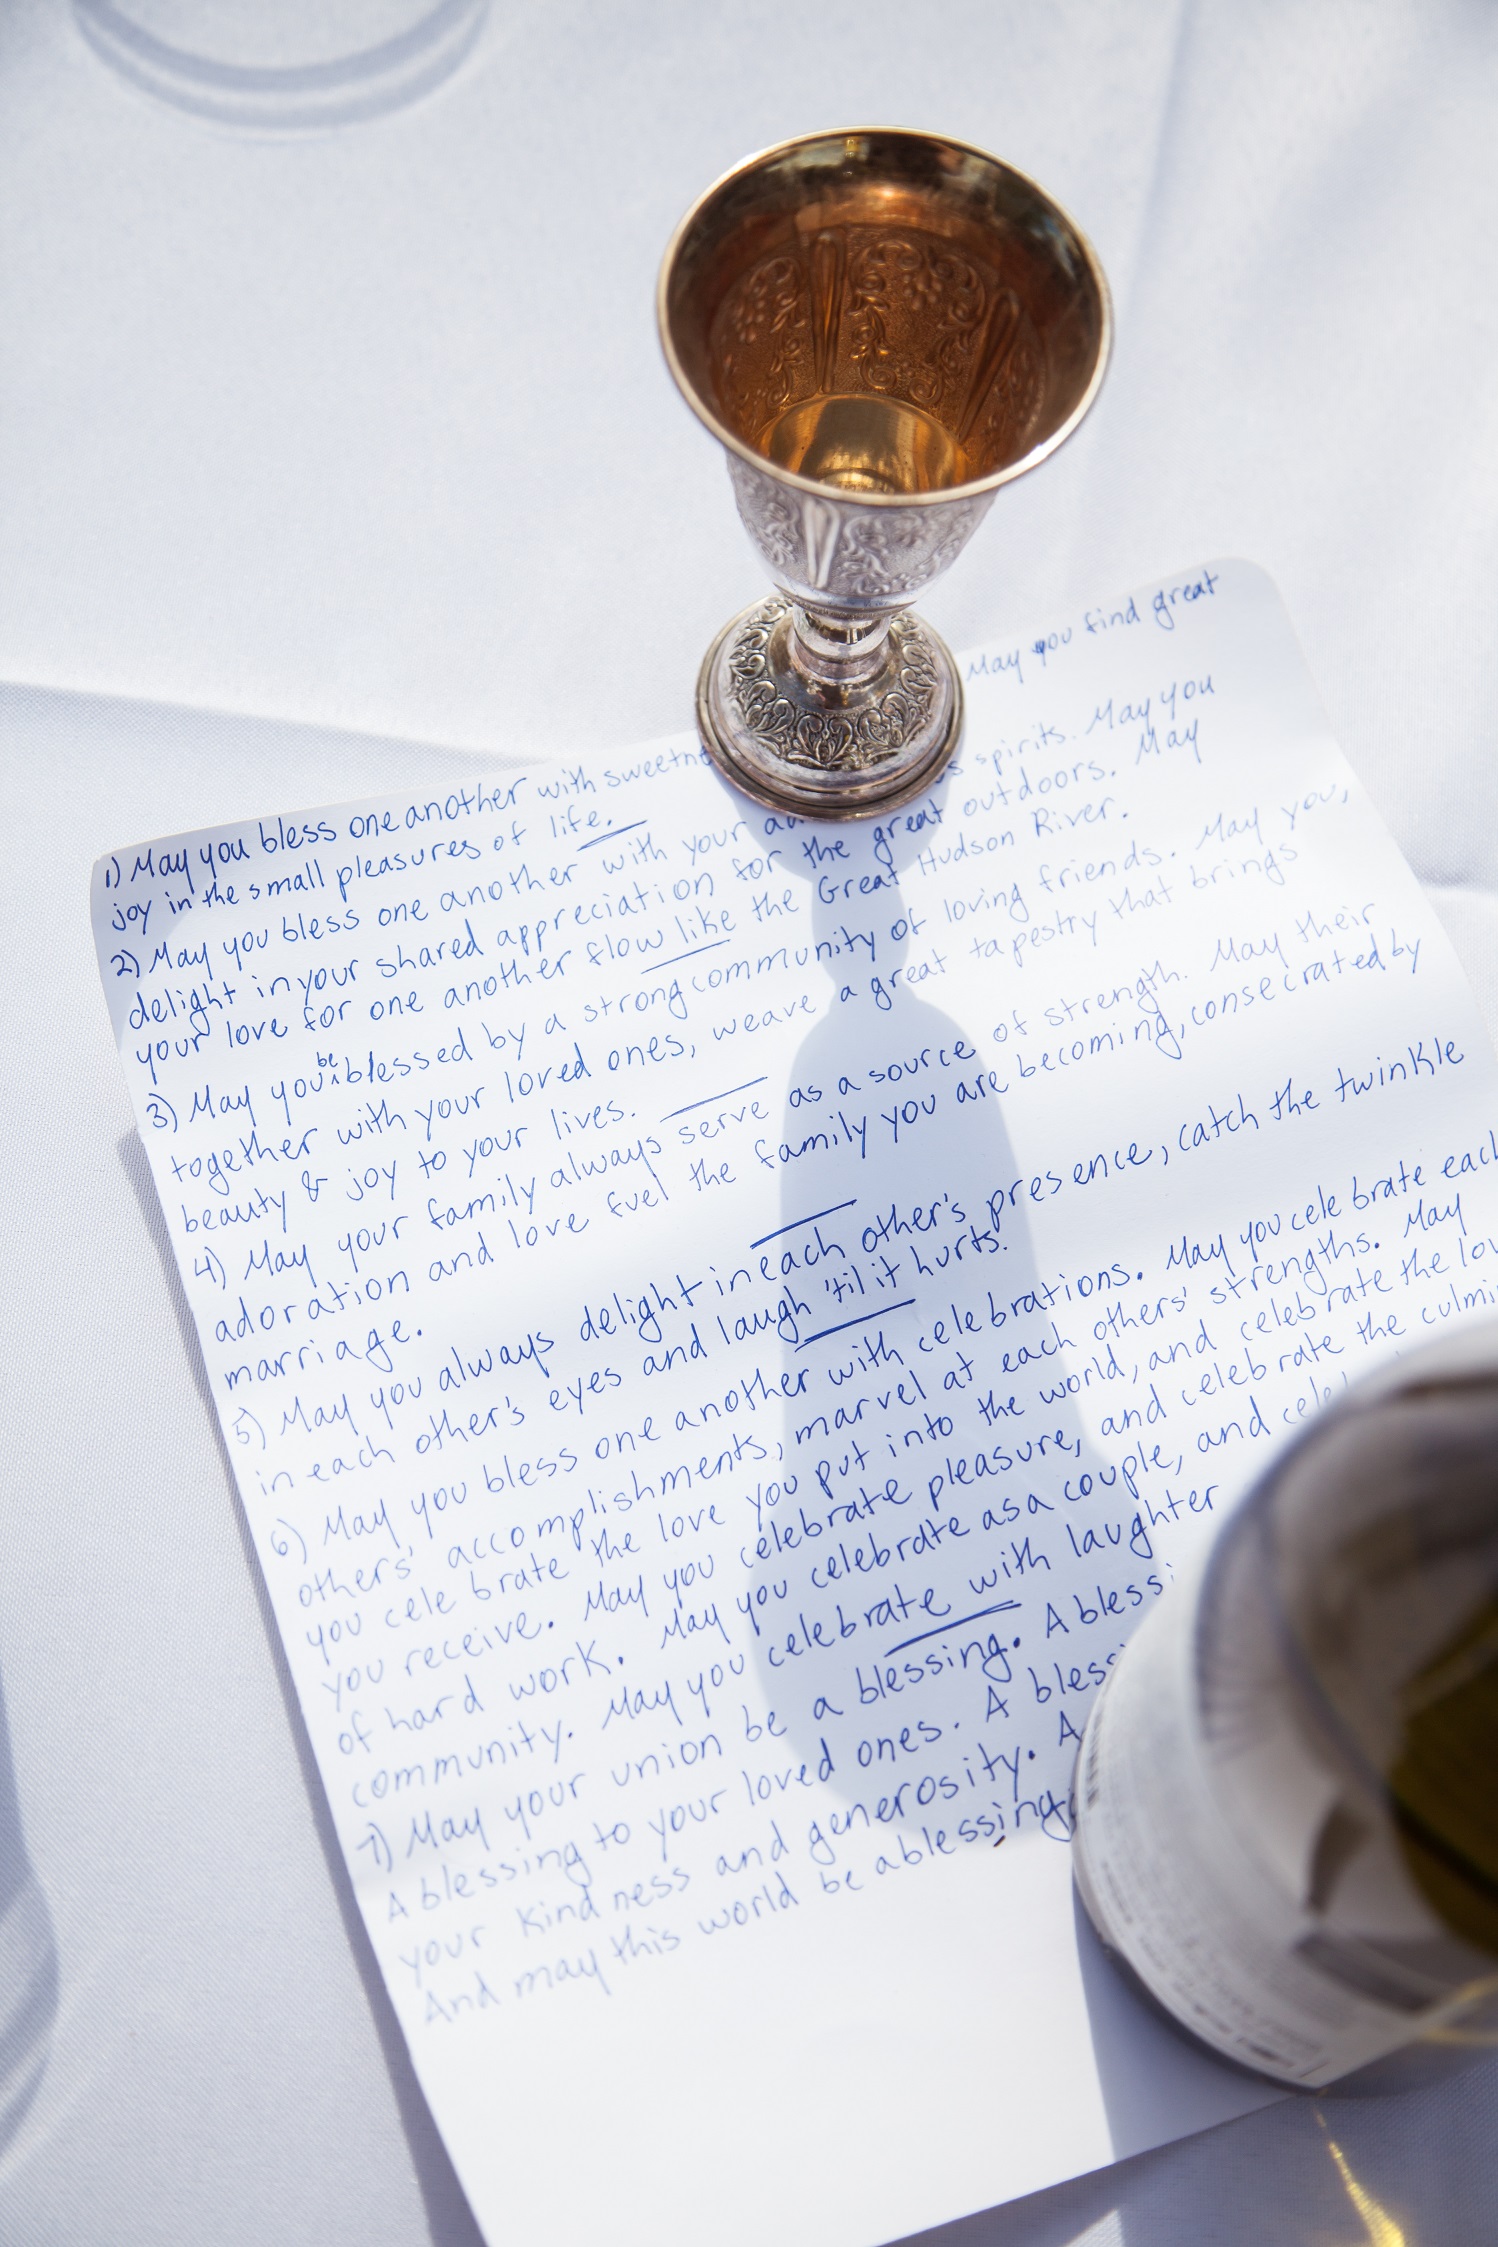 1) May you bless one another with sweetne May you find great
joy in the small pleasures of life.
2) May you bless one another with your spirits. May you
delight in your shared appreciation for the great outdoors. May
your love for one another flow like the Great Hudson River.
3) May you be blessed by a strong community of loving friends. May you,
together with your loved ones, weave a great tapestry that brings
beauty & joy to your lives.
4) May your family always serve as a source of strength. May their
adoration and love fuel the family you are becoming, consecrated by
marriage.
5) May you always delight in each other's presence, catch the twinkle
in each other's eyes and laugh 'til it hurts.
6) May you bless one another with celebrations. May you celebrate each
others' accomplishments, marvel at each others' strengths. May
you celebrate the love you put into the world, and celebrate the lov
you receive. May you celebrate pleasure, and celebrate the culmi
of hard work. May you celebrate as a couple, and cele
community. May you celebrate with laughter
7) May your union be a blessing. A bless
A blessing to your loved ones. A bless
your kindness and generosity. A
And may this world be a blessing